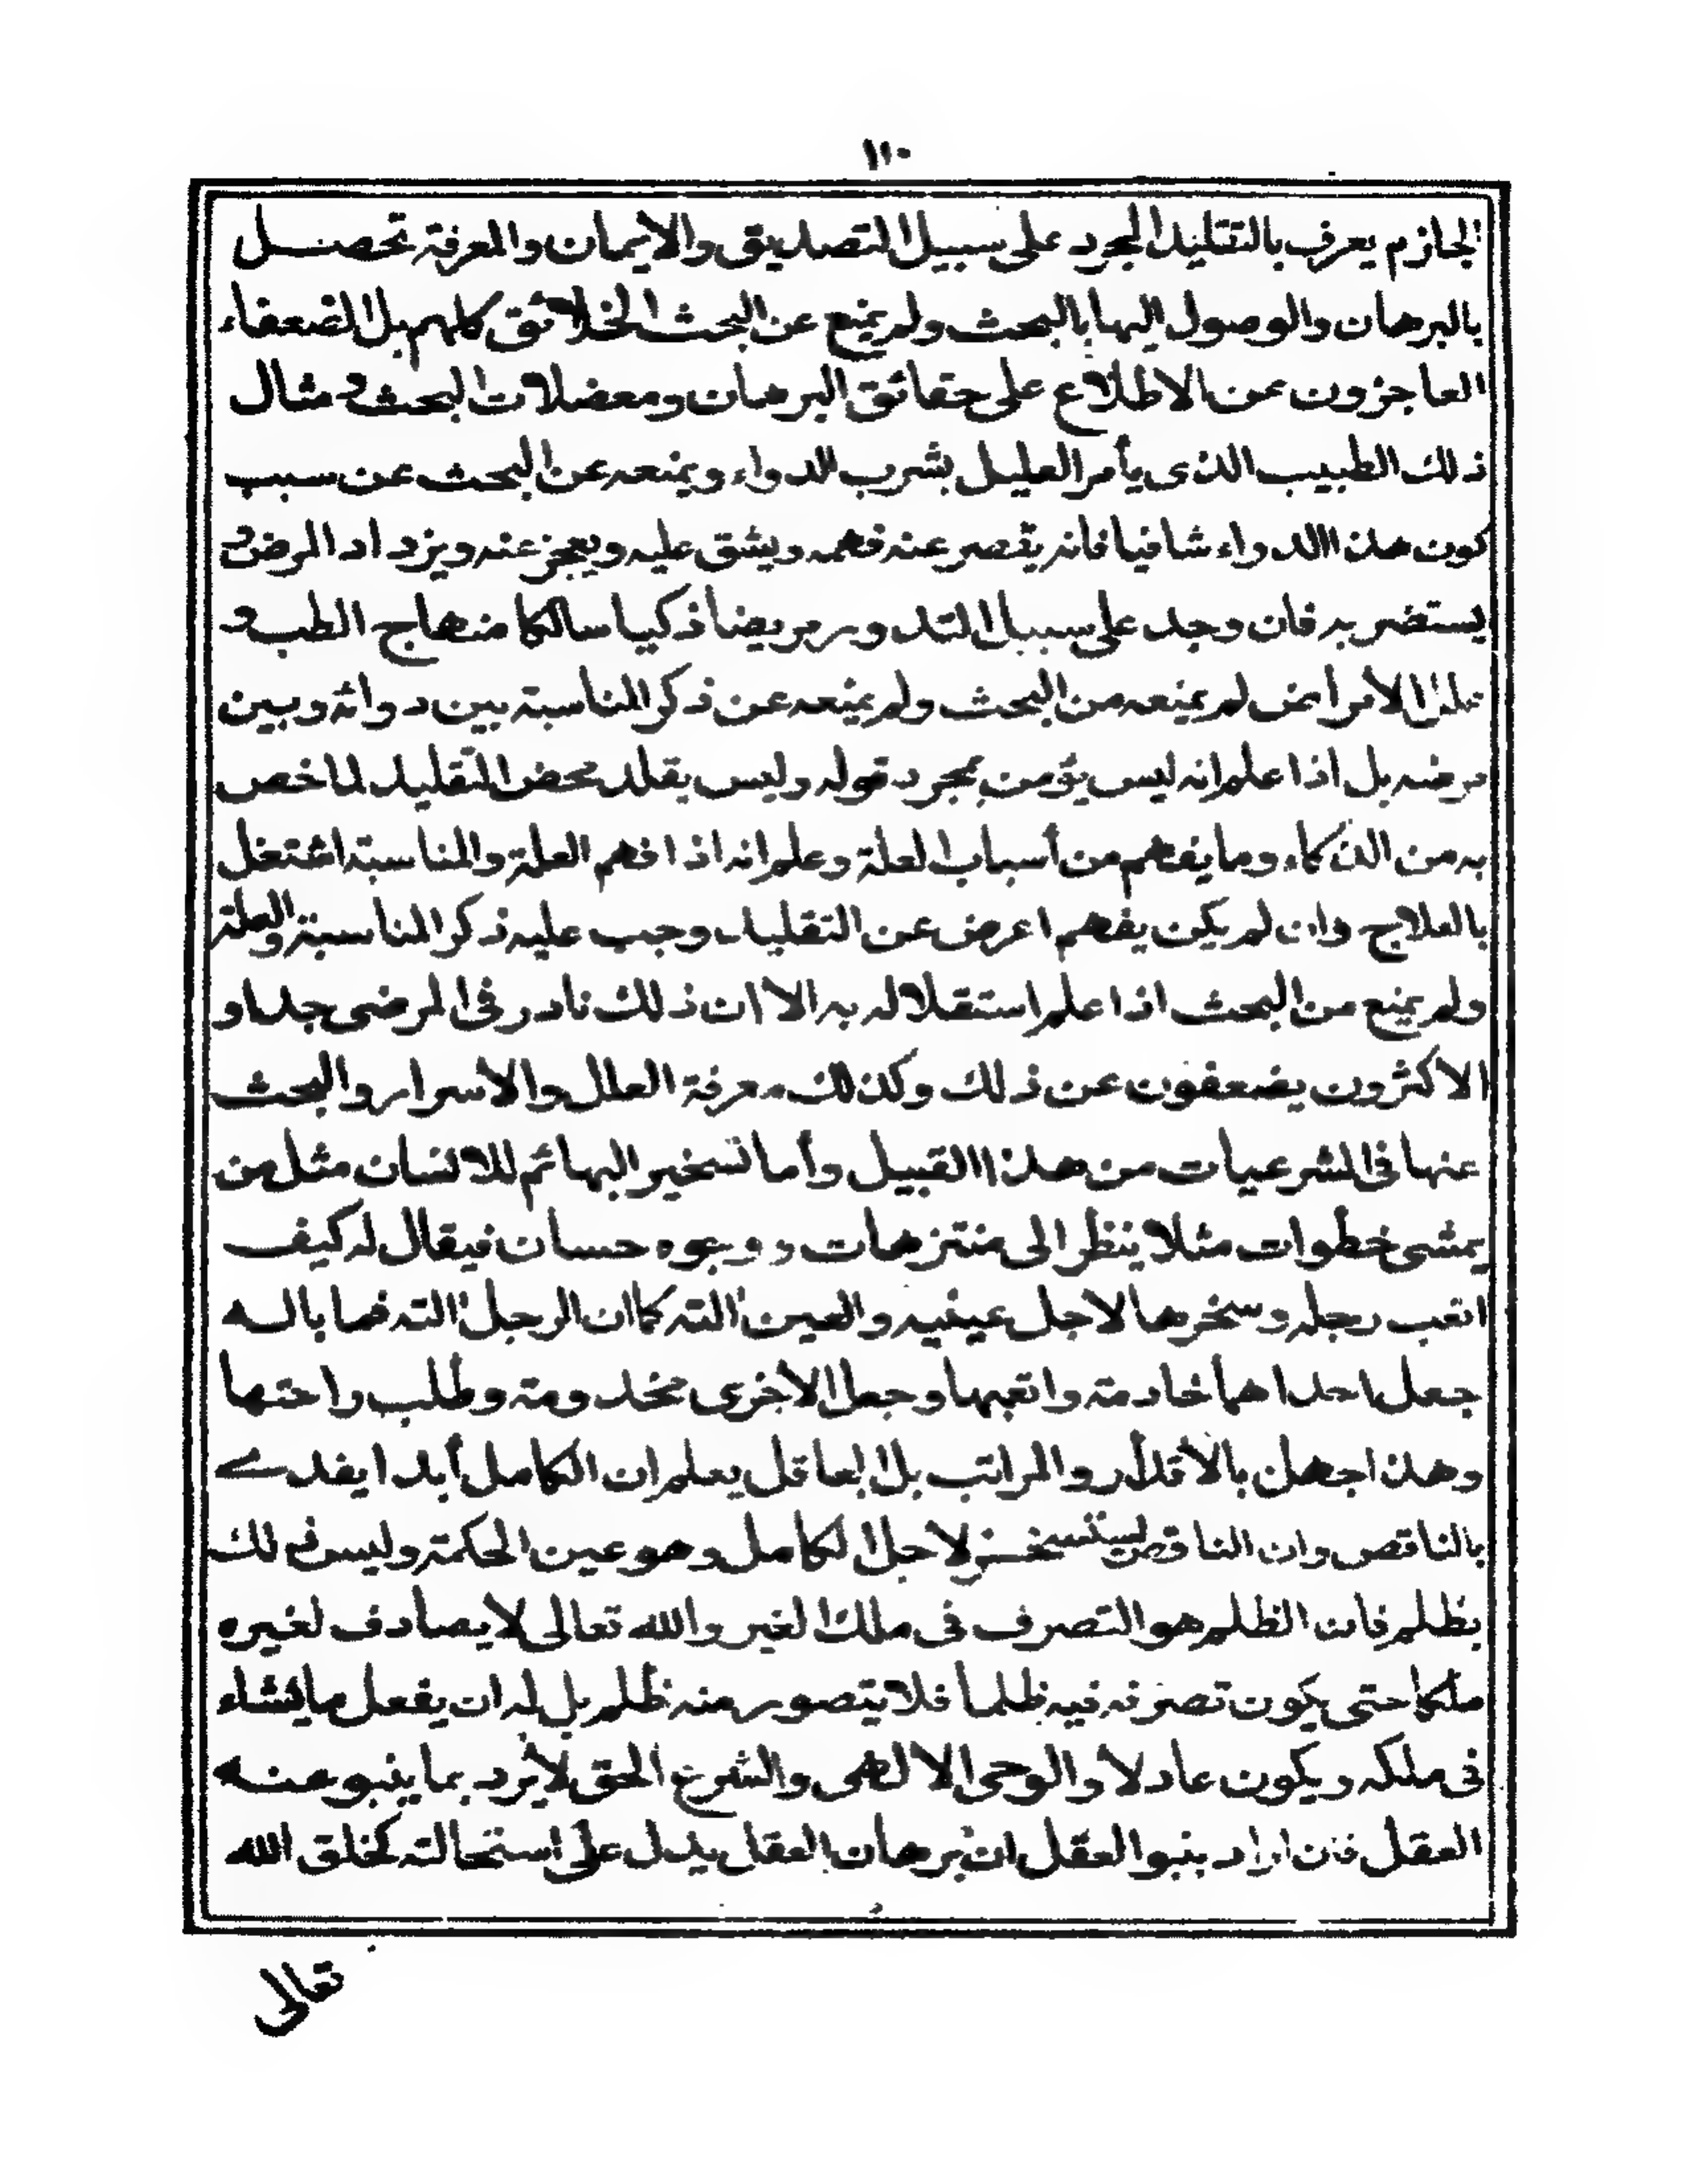 ١١٠
الجازم يعرف بالتقليد المجرد على سبيل التصديق والايمان والمعرفة تحصل
بالبرهان والوصول اليها بالبحث ولم يمنع عن البحث الخلائق كلهم بل الضعفاء
العاجزون عن الاطلاع على حقائق البرهان ومعضلات البحث ومثال
ذلك الطبيب الذى يأمر العليل بشرب الدواء ويمنعه عن البحث عن سبب
كون هذا الدواء شافيا فانه يقصر عنه فهمه ويشق عليه ويعجز عنه ويزداد المرض و
يستضر به فان وجد على سبيل التدور مريضا ذكيا سالكا منهاج الطب و
الأمراض لم يمنعه من البحث ولم يمنعه عن ذكر المناسبة بين دوائه وبين
مرضه بل اذا علم انه ليس يؤمن بمجرد قوله وليس يقلد محض التقليد لما خص
به من الذكاء وما يفهم من أسباب العلة وعلم انه اذا فهم العلة والمناسبة اشتغل
بالعلاج وان لم يكن يفهم اعرض عن التقليد وجب عليه ذكر المناسبة والعلة
ولم يمنع من البحث اذا علم استقلاله به الا ان ذلك نادر فى المرضى جدا و
الاكثرون يضعفون عن ذلك وكذلك معرفة العلل والأسرار والبحث
عنها فى الشرعيات من هذا القبيل وأما تسخير البهائم للانسان مثل من
يمشى خطوات مثلا ينظر الى منتزهات ووجوه حسان فيقال له كيف
اتعب رجله وسخرها لاجل عينيه والعين آلته كما ان الرجل آلته فما باله
جعل احداهما خادمة واتعبها وجعل الأخرى مخدومة وطلب راحتها
وهذا جهل بالأقدار والمراتب بل العاقل يعلم ان الكامل أبدا يفدے
بالناقص وان الناقص يستسخر لاجل الكامل وهو عين الحكمة وليس ذلك
بظلم فان الظلم هو التصرف فى ملك الغير والله تعالى لا يصادف لغيره
ملكا حتى يكون تصرفه فيه ظلما فلا يتصور منه ظلم بل له ان يفعل ما يشاء
فى ملكه ويكون عادلا والوحى الالهى والشرع الحق لا يرد بما ينبو عنه
العقل فان اراد بنبو العقل ان برهان العقل يدل على استحالته كخلق الله
تعالى